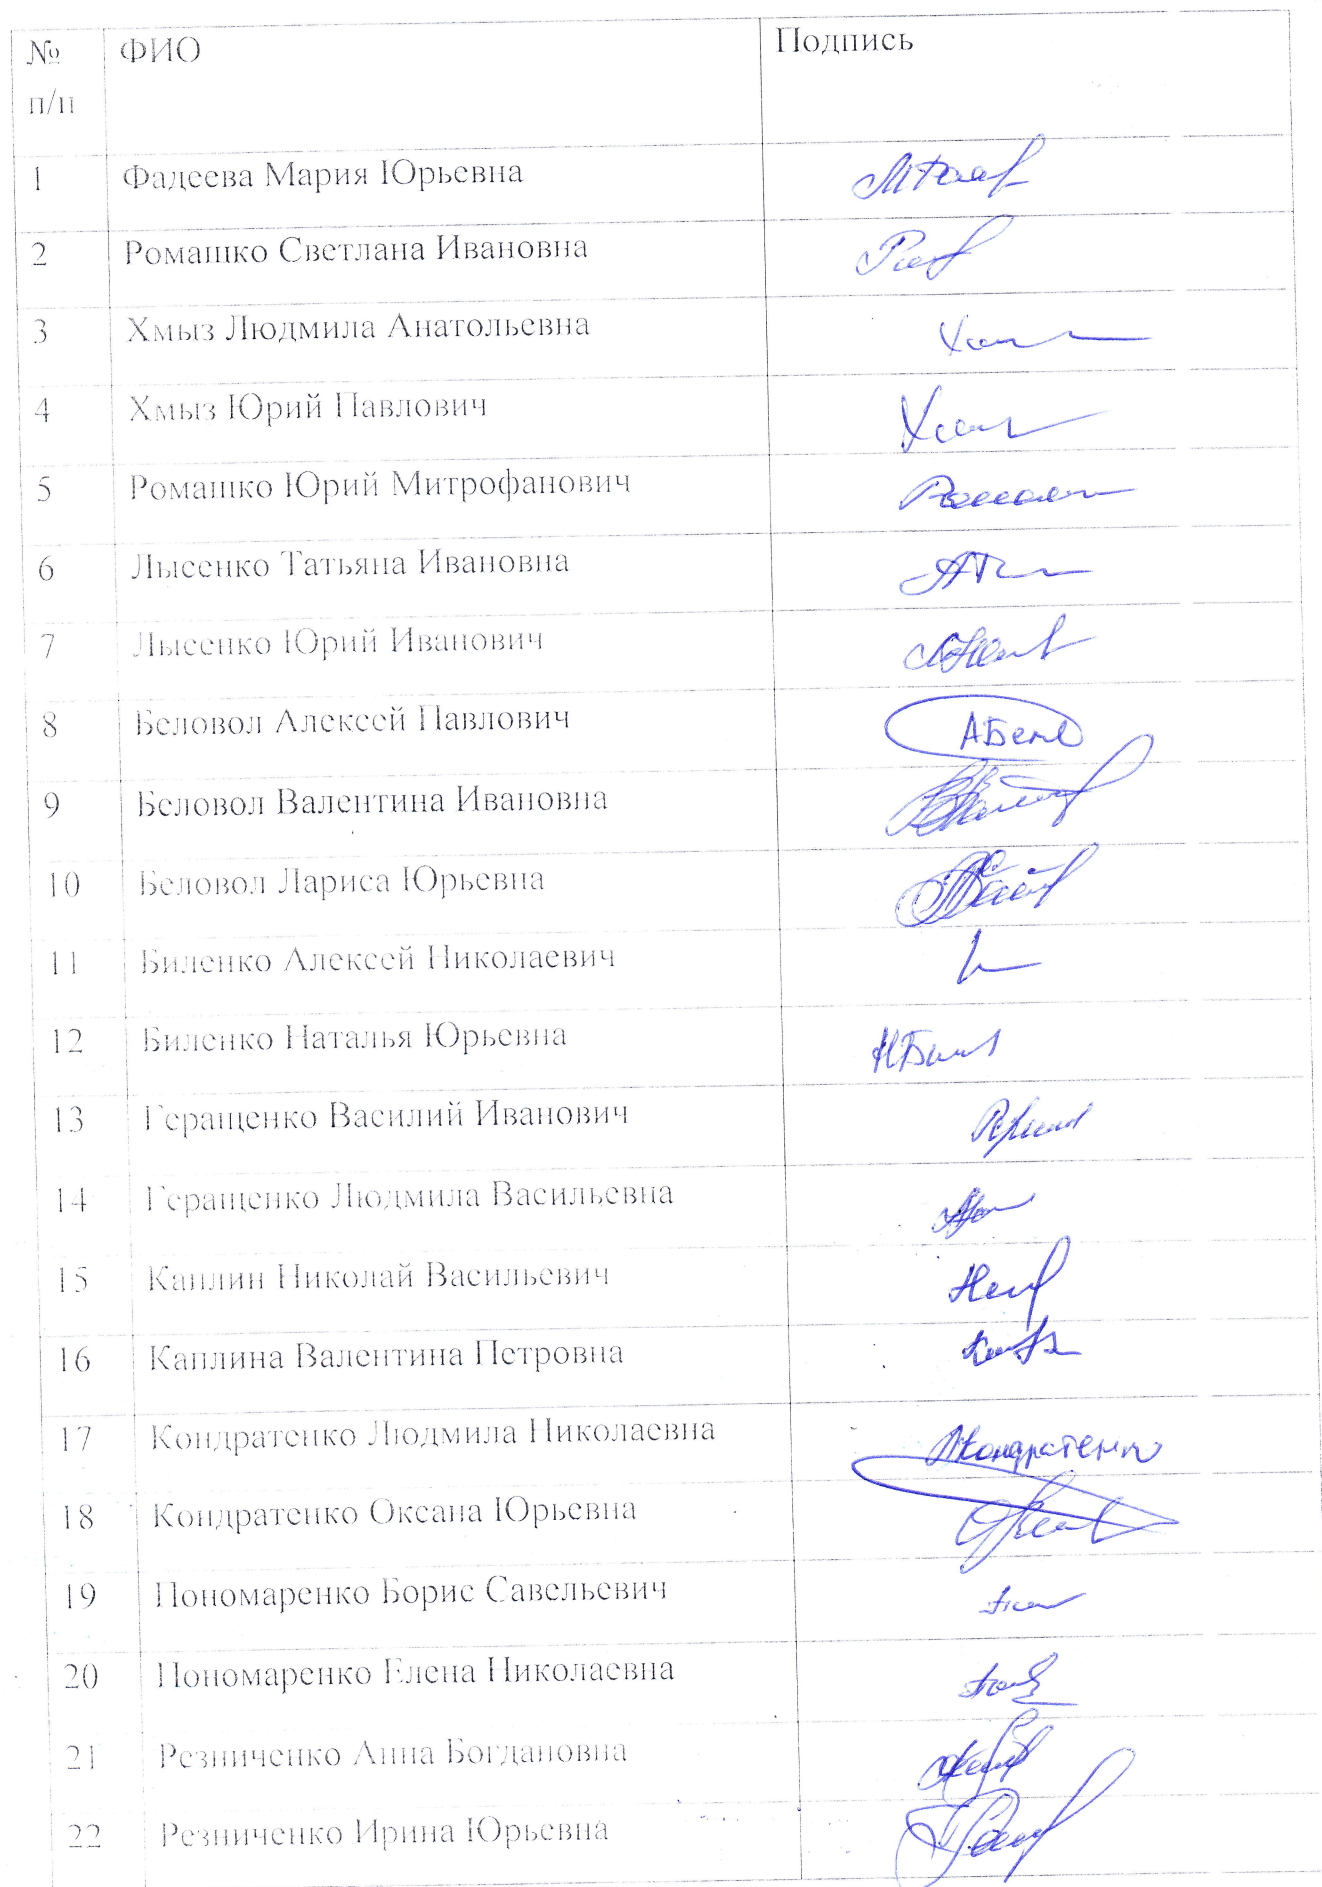 № ФИО Подпись
п/п
1 Фадеева Мария Юрьевна
2 Ромашко Светлана Ивановна
3 Хмыз Людмила Анатольевна
4 Хмыз Юрий Павлович
5 Ромашко Юрий Митрофанович
6 Лысенко Татьяна Ивановна
7 Лысенко Юрий Иванович
8 Беловол Алексей Павлович
9 Беловол Валентина Ивановна
10 Беловол Лариса Юрьевна
11 Биленко Алексей Николаевич
12 Биленко Наталья Юрьевна
13 Геращенко Василий Иванович
14 Геращенко Людмила Васильевна
15 Каплин Николай Васильевич
16 Каплина Валентина Петровна
17 Кондратенко Людмила Николаевна
18 Кондратенко Оксана Юрьевна
19 Пономаренко Борис Савельевич
20 Пономаренко Елена Николаевна
21 Резниченко Анна Богдановна
22 Резниченко Ирина Юрьевна